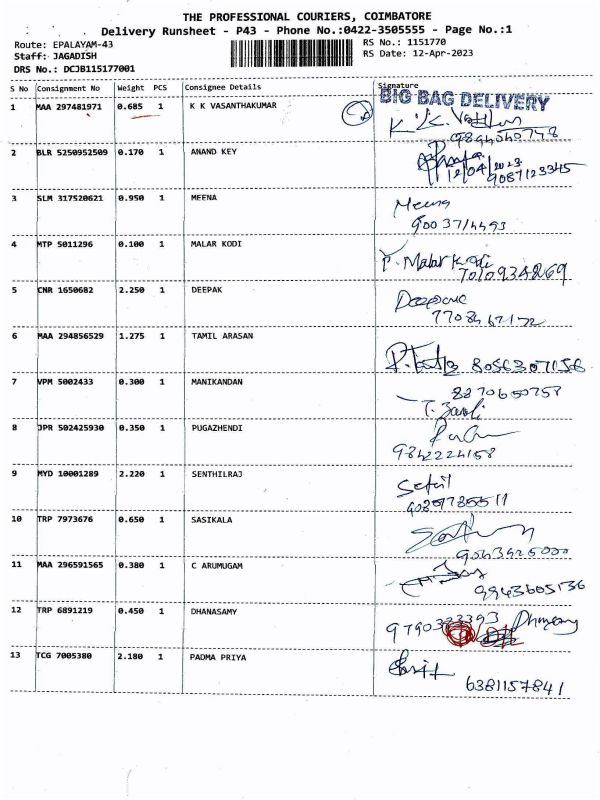 THE PROFESSIONAL COURIERS, COIMBATORE
Delivery Runsheet - P43 - Phone No.:0422-3505555 - Page No.:1
Route: EPALAYAM-43 RS No.: 1151770
Staff: JAGADISH RS Date: 12-Apr-2023
DRS No.: DCJB115177001
S No Consignment No Weight PCS Consignee Details Signature
BIG BAG DELIVERY
1 MAA 297481971 0.685 1 K K VASANTHAKUMAR
2 BLR 5250952509 0.170 1 ANAND KEY
12/04/2023
9087123345
3 SLM 317520621 0.950 1 MEENA Meena
4 MTP 5011296 0.100 1 MALAR KODI P. Malar Kodi
5 CNR 1650682 2.250 1 DEEPAK
6 MAA 294856529 1.275 1 TAMIL ARASAN 8056307156
7 VPM 5002433 0.300 1 MANIKANDAN
8870650758
8 JPR 502425930 0.350 1 PUGAZHENDI
9842224158
9 MYD 10001289 2.220 1 SENTHILRAJ
10 TRP 7973676 0.650 1 SASIKALA
11 MAA 296591565 0.380 1 C ARUMUGAM
9943605136
12 TRP 6891219 0.450 1 DHANASAMY
13 TCG 7005380 2.180 1 PADMA PRIYA
6381157841